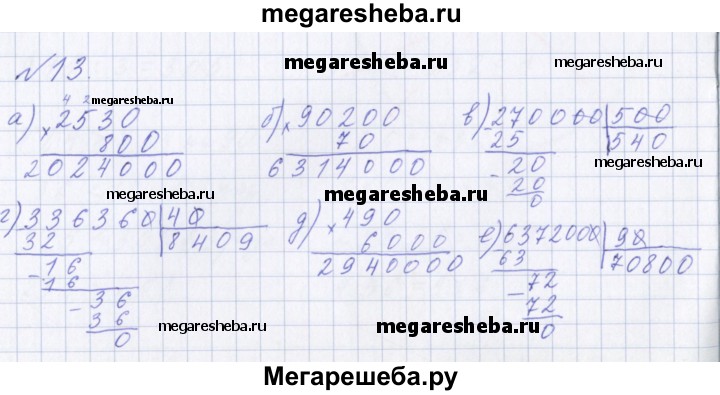 megaresheba.ru
№13.
megaresheba.ru
megaresheba.ru
4 2 megaresheba.ru
а) × 2530
800
2024000
б) × 90200
70
6314000
в) 270000 | 500
25 540
- 20
20
0
megaresheba.ru
megaresheba.ru
megaresheba.ru
г) 336360 | 40
32 8409
- 16
16
- 36
36
0
megaresheba.ru
д) × 490
6000
2940000
megaresheba.ru
е) 6372000 | 90
63 70800
- 72
72
0
megaresheba.ru
Мегарешеба.ру